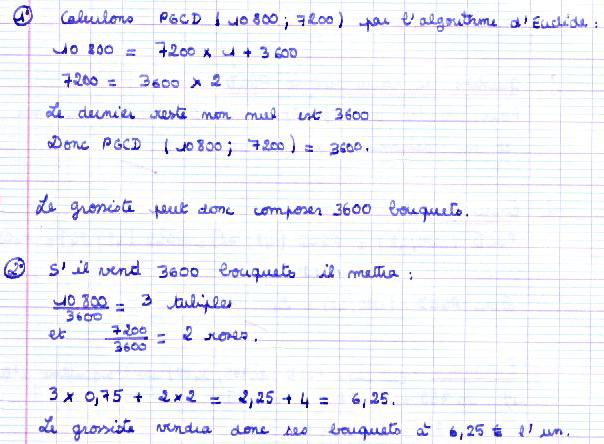 1° Calculons PGCD (10 800 ; 7200) par l'algorithme d'Euclide :
10 800 = 7200 × 1 + 3600
7200 = 3600 × 2
Le dernier reste non nul est 3600
Donc PGCD (10 800 ; 7200) = 3600.
Le grossiste peut donc composer 3600 bouquets.
2° S'il vend 3600 bouquets il mettra :
10 800/3600 = 3 tulipes
et 7200/3600 = 2 roses.
3 × 0,75 + 2 × 2 = 2,25 + 4 = 6,25.
Le grossiste vendra donc ses bouquets à 6,25 € l'un.